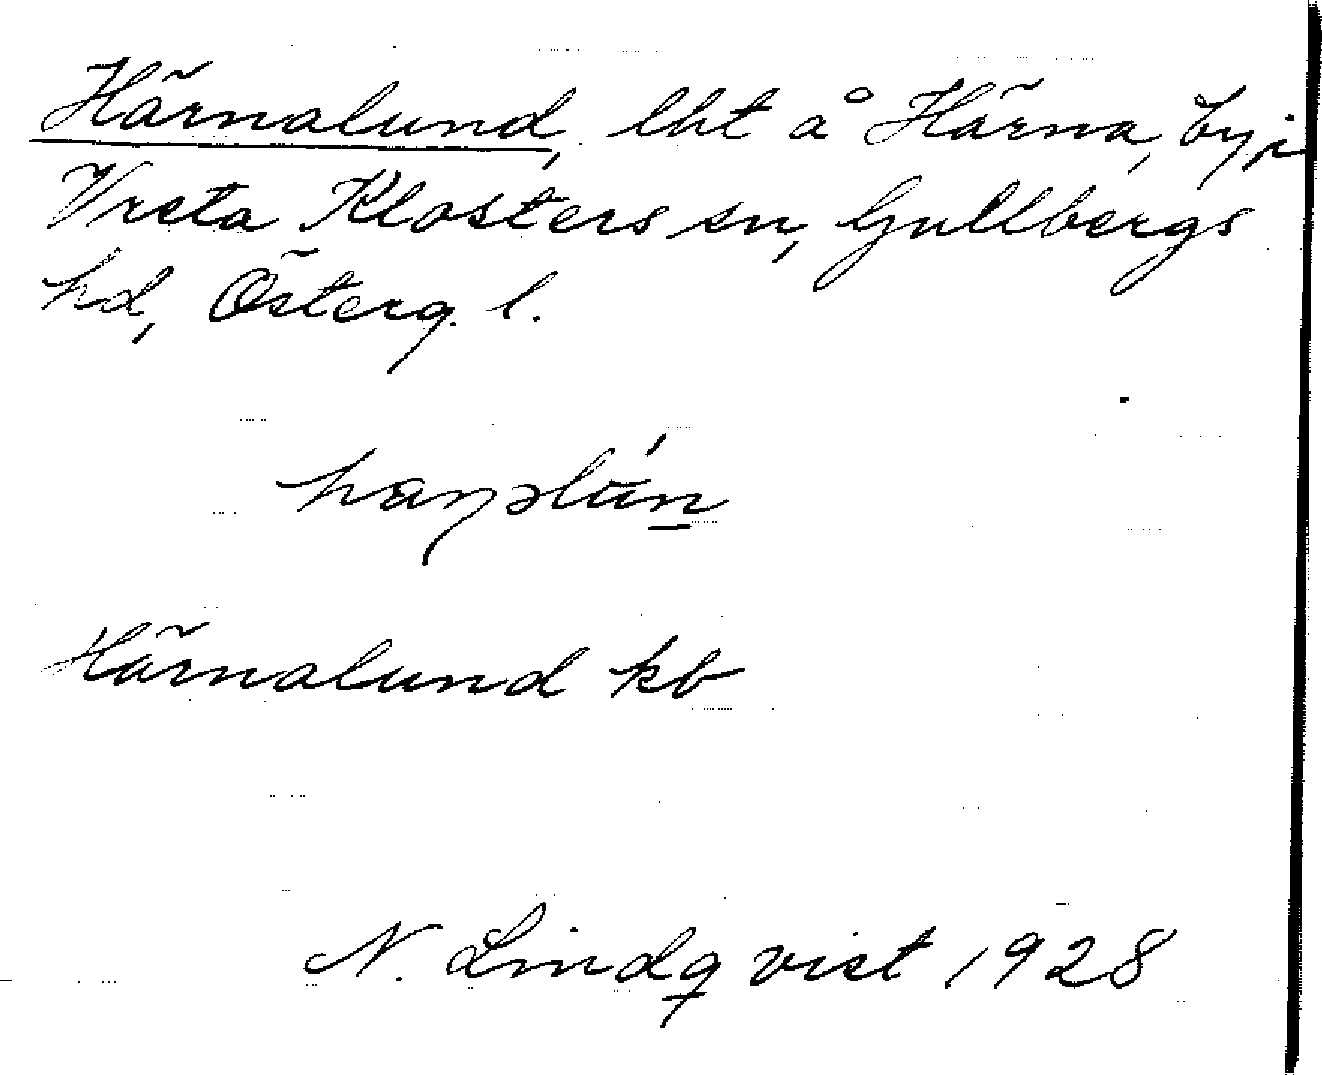 Härnalund, lht å Härna, by i
Vreta Klosters sn, Gullbergs
hd, Österg. l.
hæṇəlún
Härnalund kb
N. Lindqvist 1928